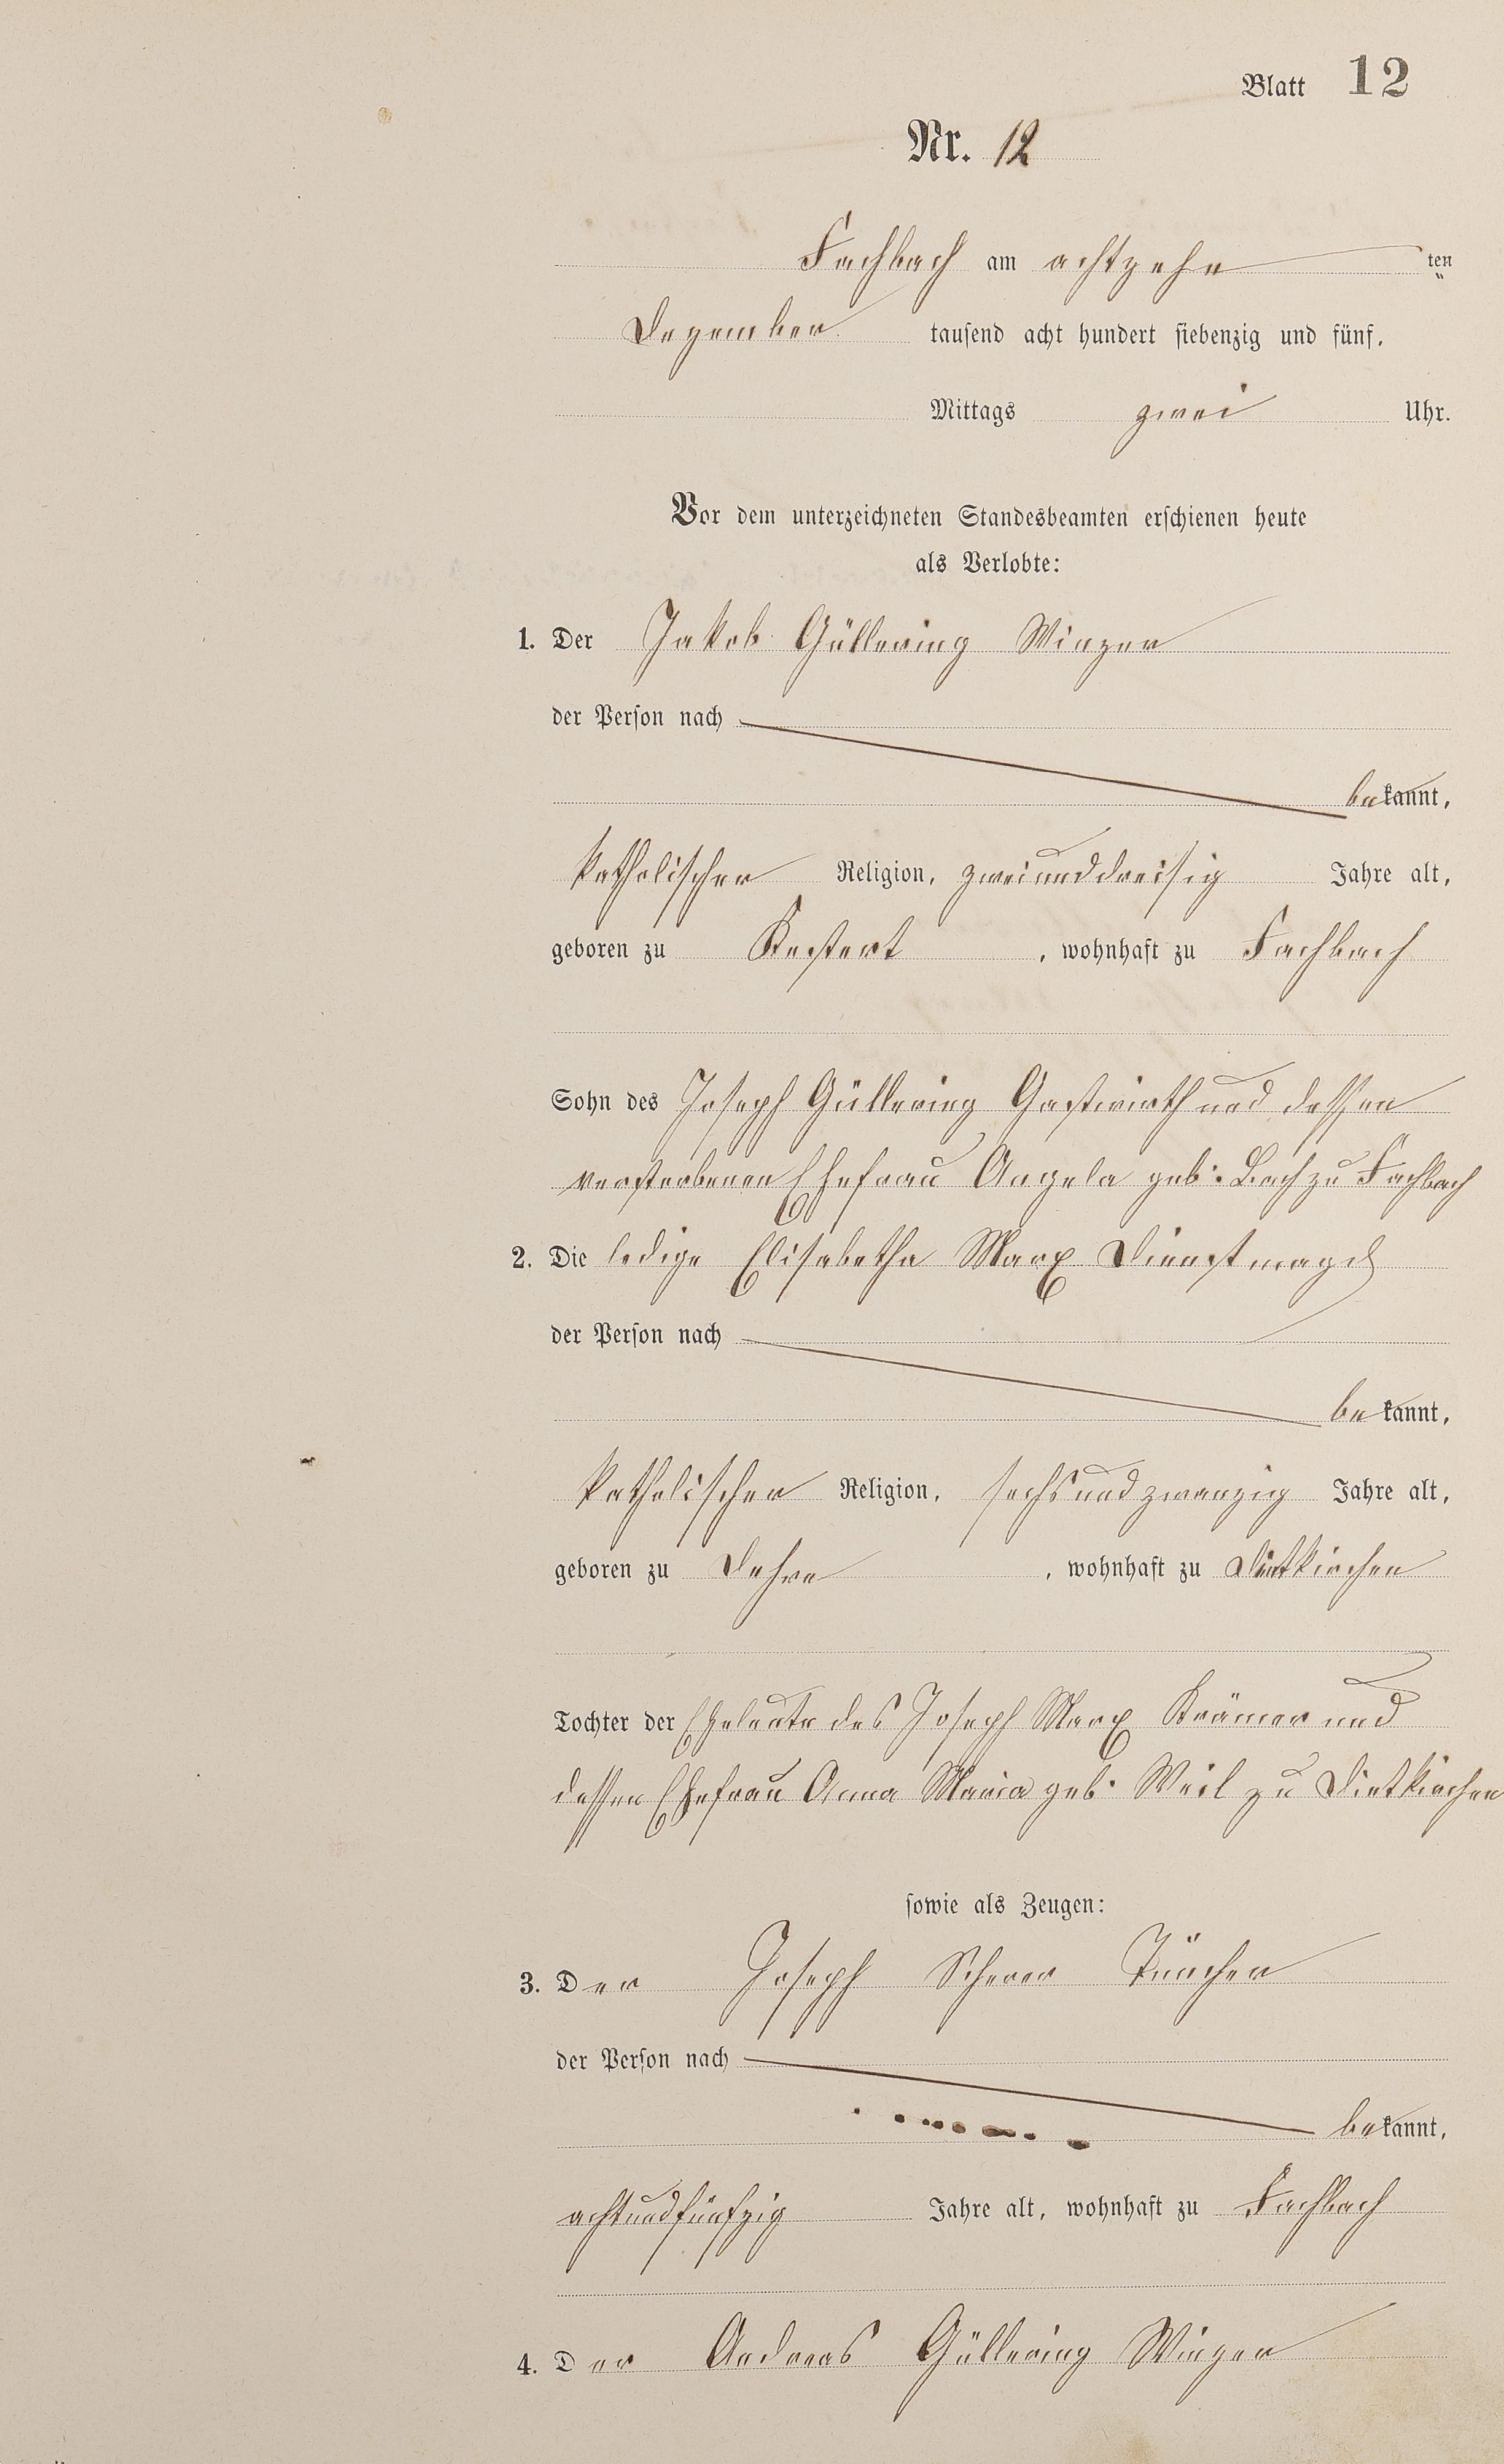 Blatt 12
Nr. 12
Fachbach am achtzehn ten
Dezember tausend acht hundert siebenzig und fünf,
Mittags zwei Uhr.
Vor dem unterzeichneten Standesbeamten erschienen heute
als Verlobte:
1. Der Jakob Güllering Winzer
der Person nach
bekannt,
katholischer Religion, zweiunddreisig Jahre alt,
geboren zu Kestert, wohnhaft zu Fachbach
Sohn des Joseph Güllering Gastwirth und dessen
verstorbenen Ehefrau Angela geb. Bach zu Fachbach
2. Die ledige Elisabetha Marx Dienstmagd
der Person nach
bekannt,
katholischer Religion, sechsundzwanzig Jahre alt,
geboren zu Dehrn, wohnhaft zu Dietkirchen
Tochter der Eheleute des Joseph Marx Krämer und
dessen Ehefrau Anna Maria geb. Weil zu Dietkirchen
sowie als Zeugen:
3. Der Joseph Scherer Tüncher
der Person nach
bekannt,
achtundfünfzig Jahre alt, wohnhaft zu Fachbach
4. Der Andreas Güllering Winzer